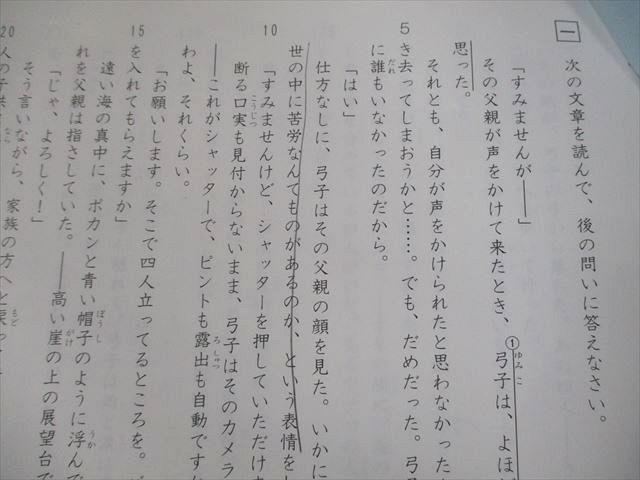 一 次の文章を読んで、後の問いに答えなさい。
「すみませんが――」
その父親が声をかけて来たとき、①弓子は、よほど
思った。
それとも、自分が声をかけられたと思わなかった
5 き去ってしまおうかと……。でも、だめだった。弓
に誰もいなかったのだから。
「はい」
仕方なしに、弓子はその父親の顔を見た。いかに
世の中に苦労なんてものがあるのか、という表情をし
10 「すみませんけど、シャッターを押していただけ
断る口実も見付からないまま、弓子はそのカメラ
――これがシャッターで、ピントも露出も自動です
わよ、それくらい。
「お願いします。そこで四人立ってるところを。
15 を入れてもらえますか」
遠い海の真中に、ポカンと青い帽子のように浮んで
れを父親は指さしていた。――高い崖の上の展望台で
「じゃ、よろしく！」
そう言いながら、家族の方へと戻っ
20 人の子供